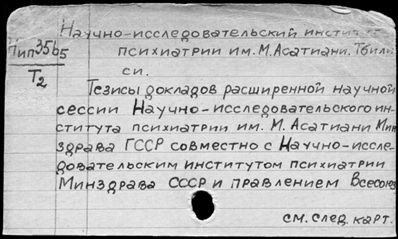 Научно-исследовательский инстит
Пип35б5
психиатрии им. М. Асатиани. Тбили
Т2
си.
Тезисы докладов расширенной научной
сессии Научно-исследовательского ин-
ститута психиатрии им. М. Асатиани Мин
здрава ГССР совместно с Научно-иссле-
довательским институтом психиатрии
Минздрава СССР и правлением Всесоюз
см. след. карт.